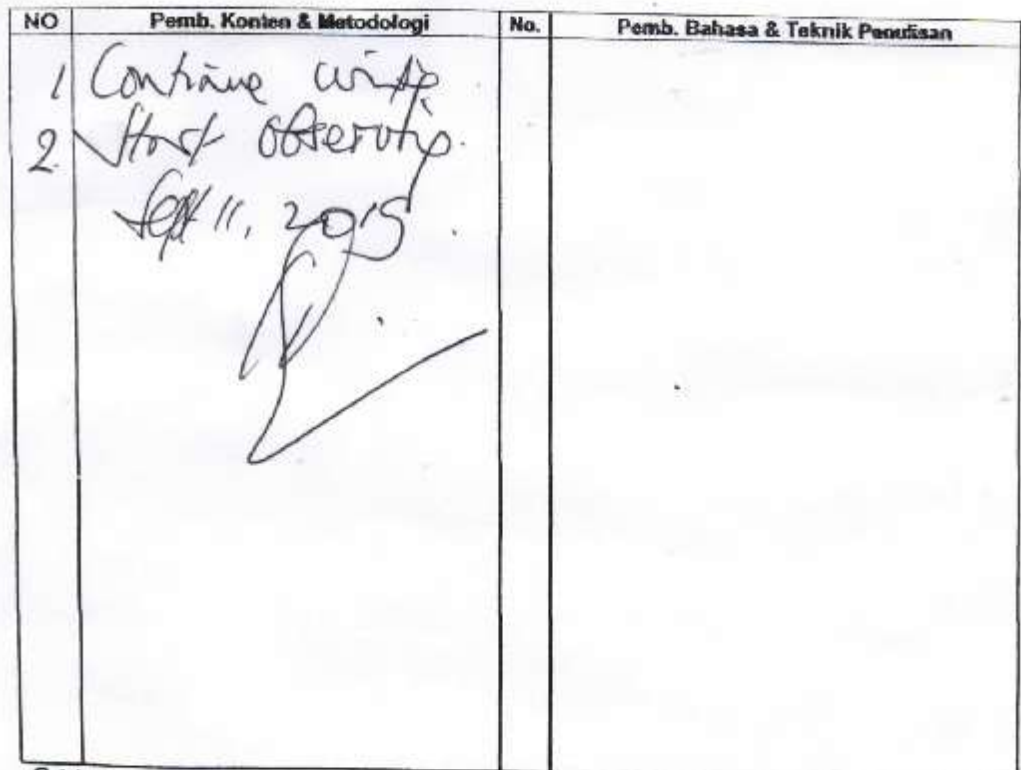 NO Pemb. Konten & Metodologi No. Pemb. Bahasa & Teknik Penulisan
1 Continue
2. Start
Sept 11, 2015.